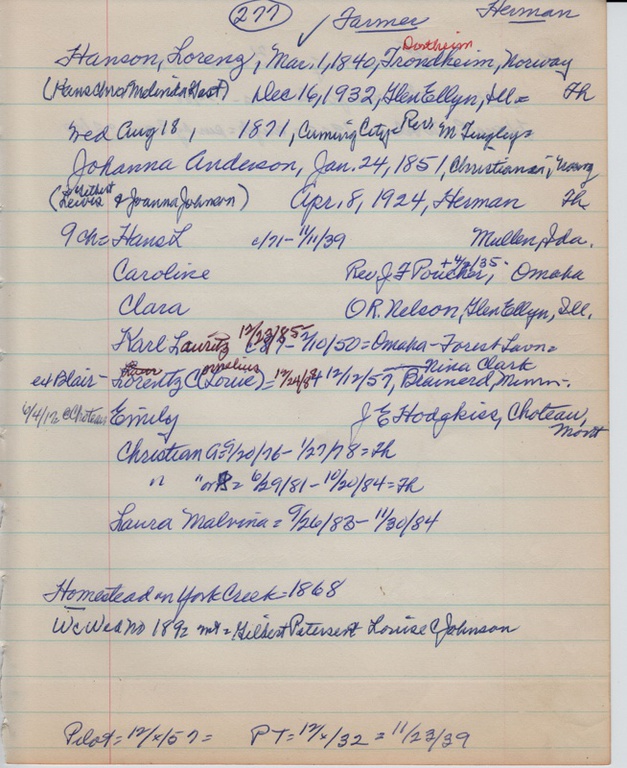 277 ✓ Farmer Herman
Hanson, Lorenz, Mar. 1, 1840, Trondheim, Norway
(Hans Chr & Malinda Gast) Dec 16, 1932, Glen Ellyn, Ill = Fh
wed Aug 18, 1871, Cuming City = Rev M Tingley =
Johanna Anderson, Jan. 24, 1851, Christiana,
(Lewis & Joanna Johnson) Apr. 8, 1924, Herman Fh
9 ch = Hans L /71 - 11/11/39 Mullen, Ida.
Caroline Rev J F Poucher, + 4/2/35 - Omaha
Clara O R. Nelson, Glen Ellyn, Ill.
Karl Lauritz 12/23/85 - 2/10/50 = Omaha - Forest Lawn =
Nina Clark
ex Blair - Lorentz C (Louie) = 12/12/57, Brainerd, Minn -
6/4/12 @ Choteau Emily J E Hodgkiss, Choteau, Mont
Christian A = 9/20/76 - 1/27/78 = Fh
" " or B = 6/29/81 - 10/20/84 = Fh
Laura Malvina = 9/26/83 - 11/30/84
Homestead on York Creek = 1868
Wc Wed no 1892 mt = Gilbert Petersen & Louise C Johnson
Pilot = 12/x/57 = PT = 12/x/32 = 11/23/39